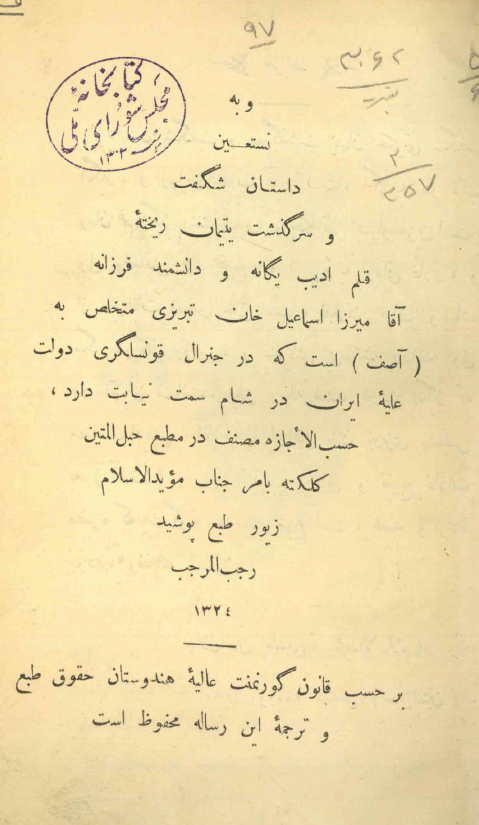 ۹۷
۳۰۶۲
۲
۲۵۷
کتابخانهٔ
مجلس شورای ملی
و به
نستعین
داستان شگفت
و سرگذشت یتیمان ریختهٔ
قلم ادیب یگانه و دانشمند فرزانه
آقا میرزا اسماعیل خان تبریزی متخلص به
( آصف ) است که در جنرال قونسلگری دولت
علیهٔ ایران در شام سمت نیابت دارد ،
حسب‌الاجازه مصنف در مطبع حبل‌المتین
کلکته بامر جناب مؤیدالاسلام
زیور طبع پوشید
رجب‌المرجب
۱۳۲۴
بر حسب قانون گورنمنت عالیهٔ هندوستان حقوق طبع
و ترجمهٔ این رساله محفوظ است